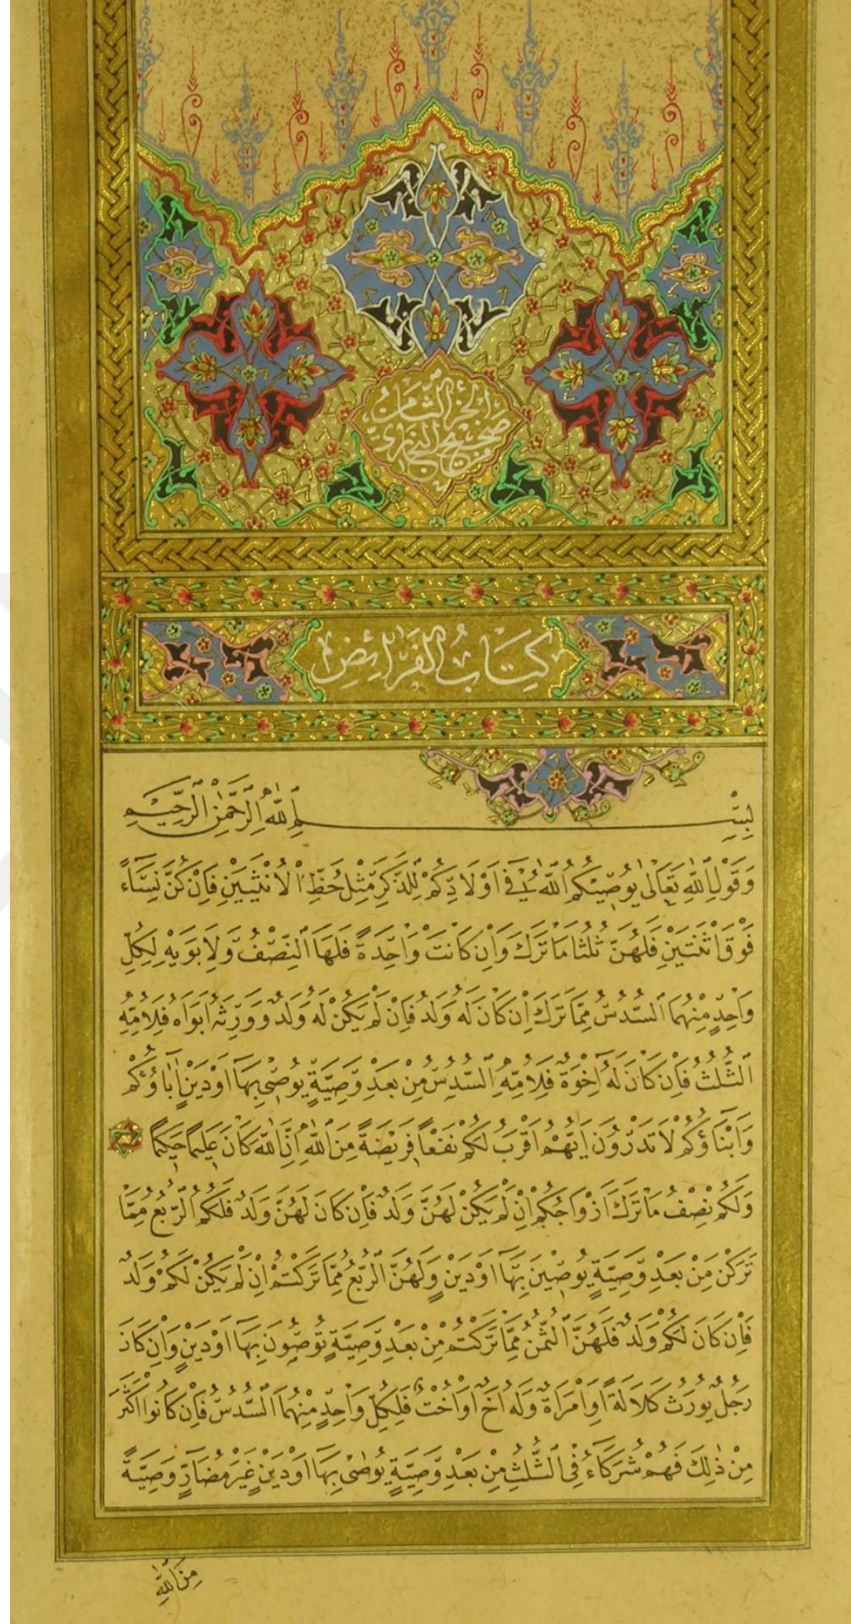 الجزء الثامن
صحيح البخاري
كِتَابُ الفَرَائِضِ
بِسْمِ اللهِ الرَّحْمٰنِ الرَّحِيمِ
وَقَوْلِ اللهِ تَعَالٰى يُوصِيكُمُ اللهُ فِي اَوْلَادِكُمْ لِلذَّكَرِ مِثْلُ حَظِّ الْاُنْثَيَيْنِ فَاِنْ كُنَّ نِسَاءً
فَوْقَ اثْنَتَيْنِ فَلَهُنَّ ثُلُثَا مَا تَرَكَ وَاِنْ كَانَتْ وَاحِدَةً فَلَهَا النِّصْفُ وَلِاَبَوَيْهِ لِكُلِّ
وَاحِدٍ مِنْهُمَا السُّدُسُ مِمَّا تَرَكَ اِنْ كَانَ لَهُ وَلَدٌ فَاِنْ لَمْ يَكُنْ لَهُ وَلَدٌ وَوَرِثَهُ اَبَوَاهُ فَلِاُمِّهِ
الثُّلُثُ فَاِنْ كَانَ لَهُ اِخْوَةٌ فَلِاُمِّهِ السُّدُسُ مِنْ بَعْدِ وَصِيَّةٍ يُوصِي بِهَا اَوْ دَيْنٍ اٰبَاؤُكُمْ
وَاَبْنَاؤُكُمْ لَا تَدْرُونَ اَيُّهُمْ اَقْرَبُ لَكُمْ نَفْعًا فَرِيضَةً مِنَ اللهِ اِنَّ اللهَ كَانَ عَلِيمًا حَكِيمًا
وَلَكُمْ نِصْفُ مَا تَرَكَ اَزْوَاجُكُمْ اِنْ لَمْ يَكُنْ لَهُنَّ وَلَدٌ فَاِنْ كَانَ لَهُنَّ وَلَدٌ فَلَكُمُ الرُّبُعُ مِمَّا
تَرَكْنَ مِنْ بَعْدِ وَصِيَّةٍ يُوصِينَ بِهَا اَوْ دَيْنٍ وَلَهُنَّ الرُّبُعُ مِمَّا تَرَكْتُمْ اِنْ لَمْ يَكُنْ لَكُمْ وَلَدٌ
فَاِنْ كَانَ لَكُمْ وَلَدٌ فَلَهُنَّ الثُّمُنُ مِمَّا تَرَكْتُمْ مِنْ بَعْدِ وَصِيَّةٍ تُوصُونَ بِهَا اَوْ دَيْنٍ وَاِنْ كَانَ
رَجُلٌ يُورَثُ كَلَالَةً اَوِ امْرَاَةٌ وَلَهُ اَخٌ اَوْ اُخْتٌ فَلِكُلِّ وَاحِدٍ مِنْهُمَا السُّدُسُ فَاِنْ كَانُوا اَكْثَرَ
مِنْ ذٰلِكَ فَهُمْ شُرَكَاءُ فِي الثُّلُثِ مِنْ بَعْدِ وَصِيَّةٍ يُوصٰى بِهَا اَوْ دَيْنٍ غَيْرَ مُضَارٍّ وَصِيَّةً
مِنَ اللهِ